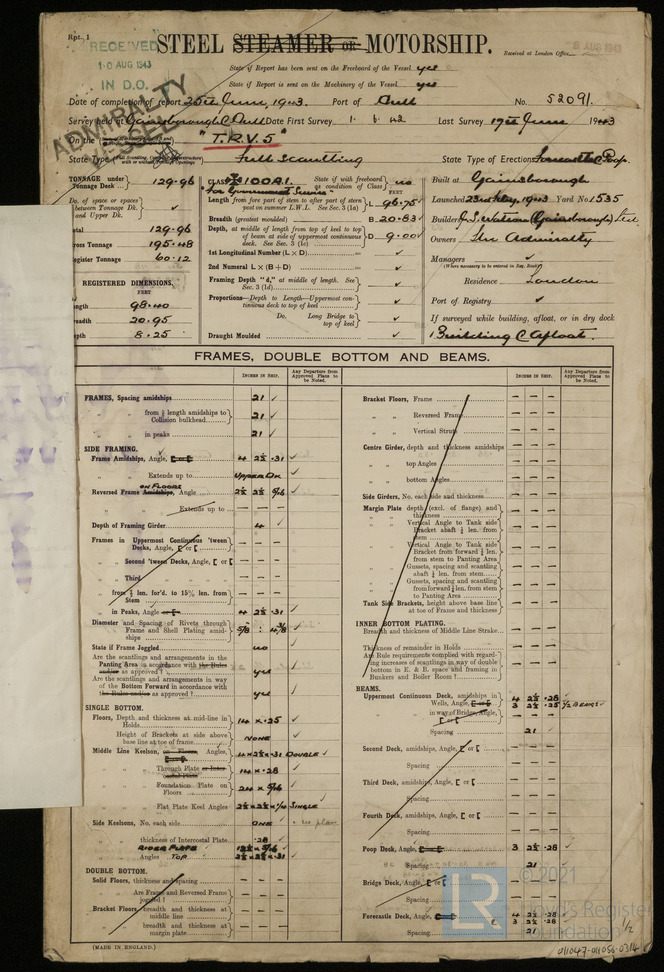 Rpt. 1
RECEIVED
10 AUG 1943
IN D.O.
ADMIRALTY
VESSEL
STEEL STEAMER OR MOTORSHIP.
Received at London Office
State if Report has been sent on the Freeboard of the Vessel yes
State if Report is sent on the Machinery of the Vessel yes
Date of completion of report 25th June, 1943. Port of Hull No. 52091.
Survey held at Gainsborough & Hull Date First Survey 1. 6. 42 Last Survey 17th June 1943
On the "T.R.V.5"
State Type Full Scantling State Type of Erections Forecastle & Poop.
TONNAGE under Tonnage Deck ... 129.96
Do. of space or spaces between Tonnage Dk. and Upper Dk. ✓
Total 129.96
Gross Tonnage 195.48
Register Tonnage 60.12
REGISTERED DIMENSIONS.
FEET
Length 98.40
Breadth 20.95
Depth 8.25
CLASS 100A1. State if with freeboard as condition of Class no
"For Government Service"
Length from fore part of stem to after part of stern post on summer L.W.L. See Sec. 3 (1a) L 96.75
Breadth (greatest moulded) B 20.83
Depth, at middle of length from top of keel to top of beam at side of uppermost continuous deck. See Sec. 3 (1c) D 9.00
1st Longitudinal Number (L × D)
2nd Numeral L × (B + D)
Framing Depth "d," at middle of length. See Sec. 3 (1d)
Proportions—Depth to Length—Uppermost continuous deck to top of keel
Do. Long Bridge to top of keel
Draught Moulded
Built at Gainsborough
Launched 23rd May, 1943 Yard No. 1535
Builders J. S. Watson (Gainsborough) Ltd.
Owners The Admiralty
Managers
(Where necessary to be entered in Reg. Book)
Residence London
Port of Registry
If surveyed while building, afloat, or in dry dock
Building & Afloat.
FRAMES, DOUBLE BOTTOM AND BEAMS.
INCHES IN SHIP.
Any Departure from Approved Plans to be Noted.
INCHES IN SHIP.
Any Departure from Approved Plans to be Noted.
FRAMES, Spacing amidships 21 ✓
from ⅗ length amidships to Collision bulkhead 21 ✓
in peaks 21 ✓
SIDE FRAMING.
Frame Amidships, Angle, [ or [ 4 2½ .31 ✓
Extends up to UPPER DK ✓
ON FLOORS
Reversed Frame Amidships, Angle 2½ 2½ 5/16 ✓
Extends up to
Depth of Framing Girder 4 ✓
Frames in Uppermost Continuous 'tween Decks, Angle, [ or [
Second 'tween Decks, Angle, [ or [
Third
from ⅗ len. for'd. to 15% len. from Stem
in Peaks, Angle or [ 4 2½ .31 ✓
Diameter and Spacing of Rivets through Frame and Shell Plating amidships 5/8 : 4 3/8 ✓
State if Frame Joggled no
Are the scantlings and arrangements in the Panting Area in accordance with the Rules and/or as approved ? yes
Are the scantlings and arrangements in way of the Bottom Forward in accordance with the Rules and/or as approved ? yes
SINGLE BOTTOM.
Floors, Depth and thickness at mid-line in Holds 14 × .25 ✓
Height of Brackets at side above base line at toe of frame NONE
Middle Line Keelson, on Floors, Angles, 4×2½×.31 DOUBLE ✓
Through Plate or Intercostal Plate 14 × .28 ✓
Foundation Plate on Floors 24 × 5/16 ✓
Flat Plate Keel Angles 2½×2½×¼ SINGLE
Side Keelsons, No. each side ONE ✓
thickness of Intercostal Plate .28 ✓
RIDER PLATE ✓
Angles TOP 2½×2½×.31 ✓
DOUBLE BOTTOM.
Solid Floors, thickness and spacing
Are Frame and Reversed Frame joggled?
Bracket Floors, breadth and thickness at middle line
breadth and thickness at margin plate
Bracket Floors, Frame
Reversed Frame
Vertical Struts
Centre Girder, depth and thickness amidships
top Angles
bottom Angles
Side Girders, No. each side and thickness
Margin Plate depth (excl. of flange) and thickness
Vertical Angle to Tank side Bracket abaft ¼ len. from stem
Vertical Angle to Tank side Bracket from forward ¼ len. from stem to Panting Area
Gussets, spacing and scantling abaft ¼ len. from stem
Gussets, spacing and scantling from forward ¼ len. from stem to Panting Area
Tank Side Brackets, height above base line at toe of Frame and thickness
INNER BOTTOM PLATING.
Breadth and thickness of Middle Line Strake
Thickness of remainder in Holds
Are Rule requirements complied with regarding increases of scantlings in way of double bottom in E. & B. space and framing in Bunkers and Boiler Room ?
BEAMS.
Uppermost Continuous Deck, amidships in Wells, Angle, [ or [ 4 2½ .28 ✓
3 2½ .25 ½ BEAMS ✓
in way of Bridge, Angle, [ or [
Spacing 21 ✓
Second Deck, amidships, Angle, [ or [
Spacing
Third Deck, amidships, Angle, [ or [
Spacing
Fourth Deck, amidships, Angle, [ or [
Spacing
Poop Deck, Angle, [ or [ 3 2½ .28 ✓
Spacing 21
Bridge Deck, Angle, [ or [
Spacing
Forecastle Deck, Angle, [ or [ 4 2½ .28
3 2½ .28 1/2
Spacing 21
(MADE IN ENGLAND.)
LR
© 2021
Lloyd's Register
Foundation
011047-011056-0314